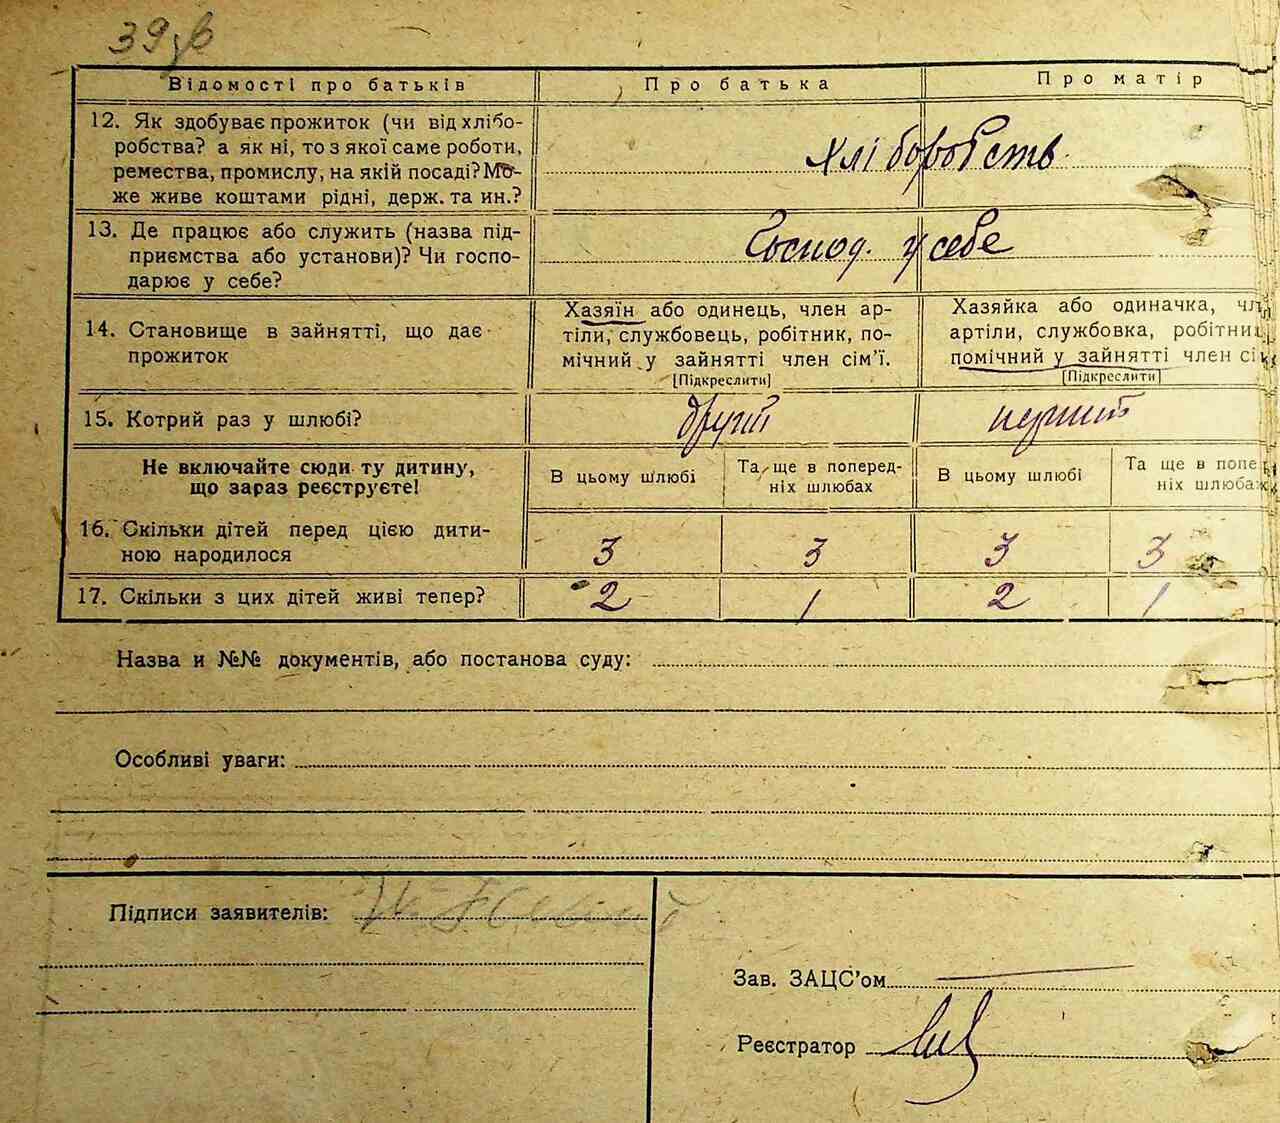 39зв
Відомості про батьків Про батька Про матір
12. Як здобуває прожиток (чи від хлібо-
робства? а як ні, то з якої саме роботи,
ремества, промислу, на якій посаді? Мо-
же живе коштами рідні, держ. та ин.?
хліборобств
13. Де працює або служить (назва під-
приємства або установи)? Чи госпо-
дарює у себе?
Господ. у себе
14. Становище в зайнятті, що дає
прожиток
Хазяїн або одинець, член ар-
тіли, службовець, робітник, по-
мічний у зайнятті член сім'ї.
[Підкреслити]
Хазяйка або одиначка, чл
артіли, службовка, робітни
помічний у зайнятті член сі
[Підкреслити]
15. Котрий раз у шлюбі? другий перший
Не включайте сюди ту дитину,
що зараз реєструєте!
В цьому шлюбі
Та ще в поперед-
ніх шлюбах
В цьому шлюбі
Та ще в попе
ніх шлюбах
16. Скільки дітей перед цією дити-
ною народилося
3 3 3 3
17. Скільки з цих дітей живі тепер? 2 1 2 1
Назва и №№ документів, або постанова суду:
Особливі уваги:
Підписи заявителів:
Зав. ЗАЦС'ом
Реєстратор